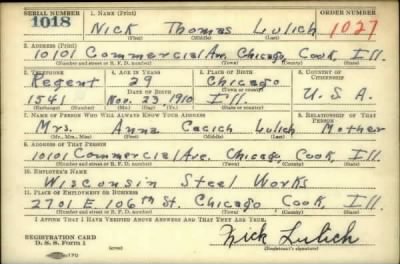 SERIAL NUMBER 1. NAME (Print) ORDER NUMBER
1018 Nick Thomas Lulich 1027
(First) (Middle) (Last)
2. ADDRESS (Print)
10101 Commercial Ave. Chicago, Cook, Ill.
(Number and street or R. F. D. number) (Town) (County) (State)
3. TELEPHONE 4. AGE IN YEARS 5. PLACE OF BIRTH 6. COUNTRY OF CITIZENSHIP
Regent 29 Chicago
DATE OF BIRTH (Town or county) U.S.A.
1541 Nov. 23 1910 Ill.
(Exchange) (Number) (Mo.) (Day) (Yr.) (State or country)
7. NAME OF PERSON WHO WILL ALWAYS KNOW YOUR ADDRESS 8. RELATIONSHIP OF THAT PERSON
Mrs. Anna Cacich Lulich Mother
(Mr., Mrs., Miss) (First) (Middle) (Last)
9. ADDRESS OF THAT PERSON
10101 Commercial Ave. Chicago, Cook, Ill.
(Number and street or R. F. D. number) (Town) (County) (State)
10. EMPLOYER'S NAME
Wisconsin Steel Works
11. PLACE OF EMPLOYMENT OR BUSINESS
2701 E. 106th St. Chicago Cook, Ill.
(Number and street or R. F. D. number) (Town) (County) (State)
I AFFIRM THAT I HAVE VERIFIED ABOVE ANSWERS AND THAT THEY ARE TRUE.
REGISTRATION CARD
D. S. S. Form 1 Nick Lulich
(Registrant's signature)